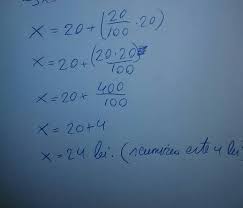 x = 20 + (20/100 · 20)
x = 20 + (20·20/100)
x = 20 + 400/100
x = 20 + 4
x = 24 lei. (scumpirea este 4 lei